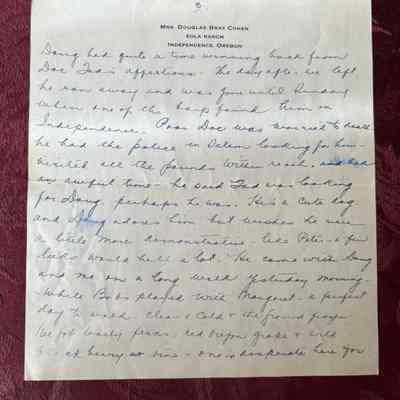 3.
MRS. DOUGLAS BRAY COHEN
EOLA RANCH
INDEPENDENCE, OREGON
Doug had quite a time winning back from
Doc Tad's affections. The day after we left
he ran away and was gone until Sunday
when one of the boys found him in
Independence. Poor Doc was worried to death
he had the police in Salem looking for him -
visited all the pounds within reach, and had
an awful time - he said Tad was looking
for Doug. perhaps he was. He's a cute dog
and Doug adores him but wishes he were
a little more demonstrative. like Pete - a few
licks would help a lot. He came with Doug
and me on a long walk yesterday morning -
while Bobs played with Margaret - a perfect
day to walk clear & cold & the ground frozen
We got lovely ferns, red Oregon grape & wild
blackberry vines - one is desperate here for